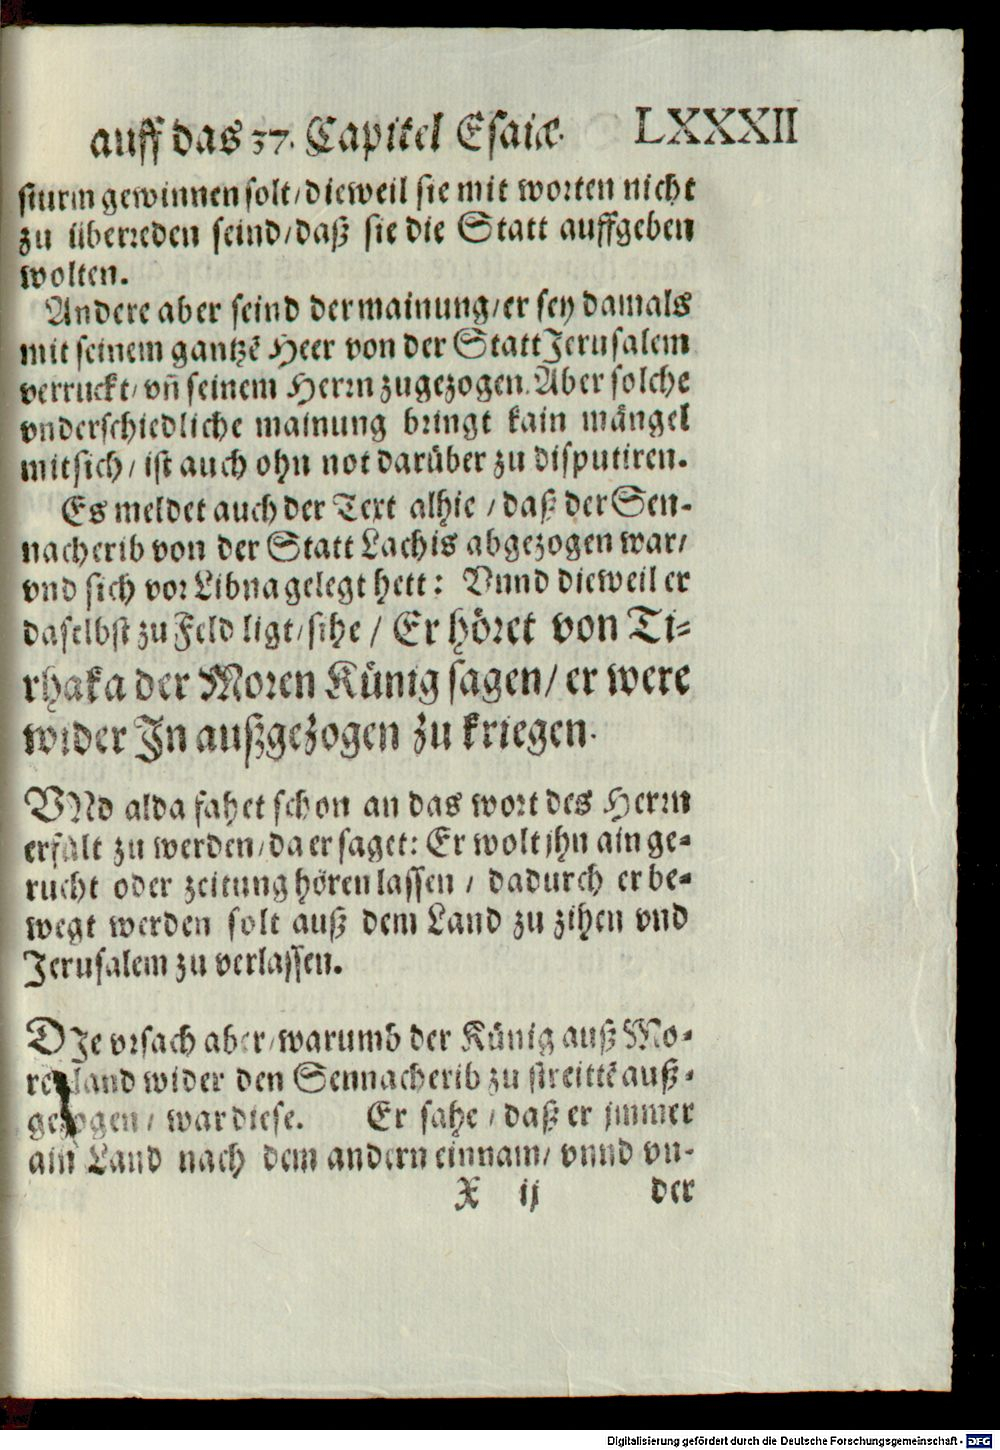 auff das 37. Capitel Esaiæ. LXXXII
sturm gewinnen solt/dieweil sie mit worten nicht
zu überreden seind/daß sie die Statt auffgeben
wolten.
Andere aber seind der mainung/er sey damals
mit seinem gantzẽ Heer von der Statt Jerusalem
verruckt/vñ seinem Herrn zugezogen. Aber solche
vnderschiedliche mainung bringt kain mängel
mitsich/ist auch ohn not darüber zu disputiren.
Es meldet auch der Text alhie/daß der Sen-
nacherib von der Statt Lachis abgezogen war/
vnd sich vor Libna gelegt hett: Vnnd dieweil er
daselbst zu Feld ligt/sihe/Er höret von Ti-
rhaka der Moren Künig sagen/er were
wider In außgezogen zu kriegen.
VNd alda fahet schon an das wort des Herrn
erfült zu werden/da er saget: Er wolt jhn ain ge-
rucht oder zeitung hören lassen/dadurch er be-
wegt werden solt auß dem Land zu zihen vnd
Jerusalem zu verlassen.
DJe vrsach aber/warumb der Künig auß Mo-
renland wider den Sennacherib zu streittẽ auß-
gezogen/war diese. Er sahe/daß er jmmer
ain Land nach dem andern einnam/vnnd vn-
X ij der
Digitalisierung gefördert durch die Deutsche Forschungsgemeinschaft - DFG